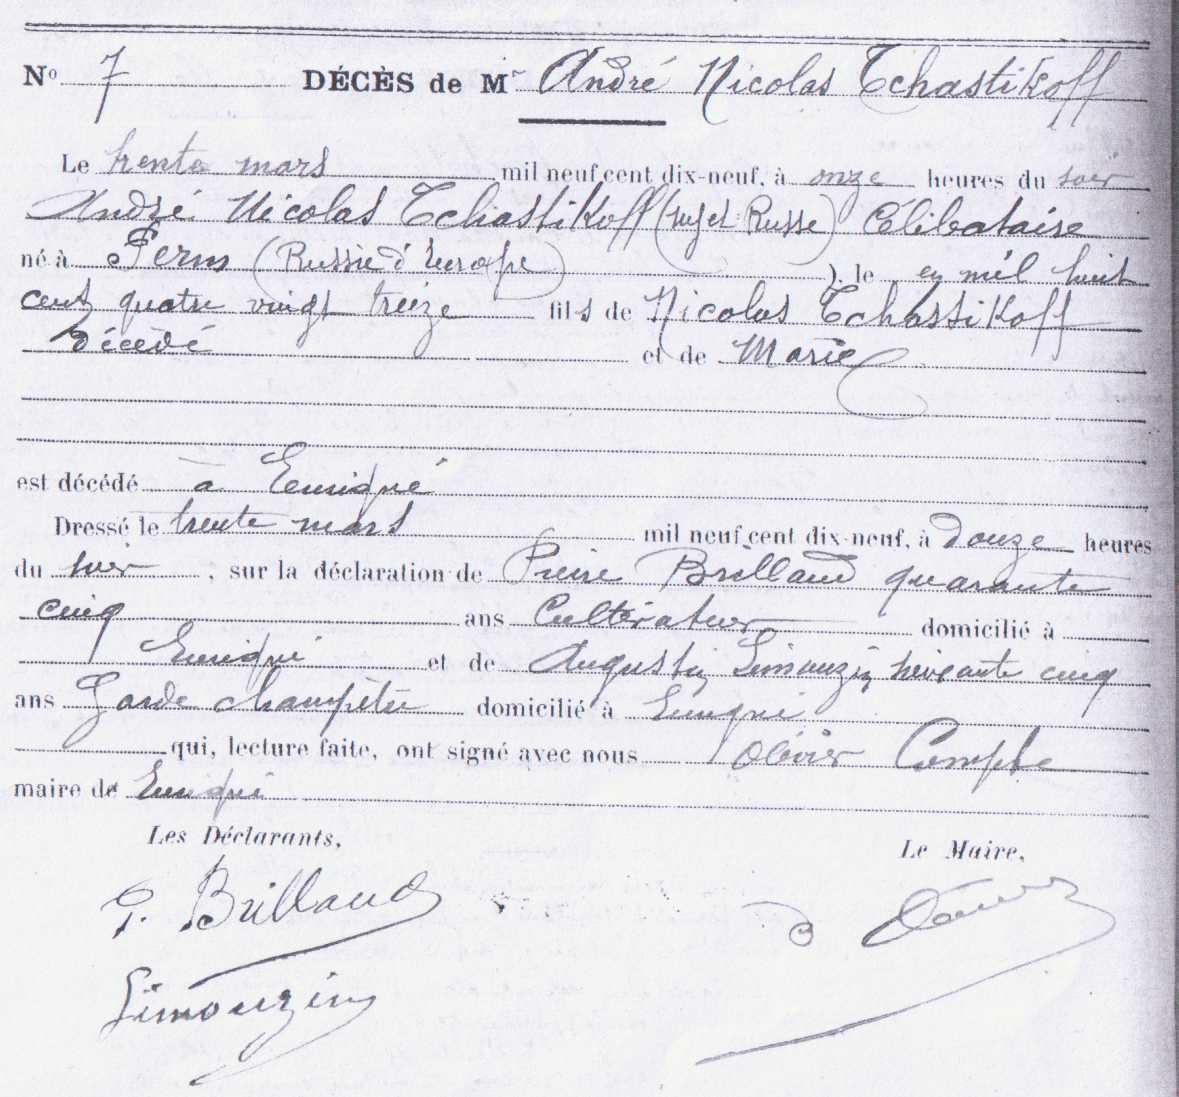 N° 7 DÉCÈS de Mr André Nicolas Tchastikoff
Le trente mars mil neuf cent dix-neuf, à onze heures du soir
André Nicolas Tchastikoff (sujet Russe) Célibataire
né à Perm (Russie d'Europe ), le en mil huit
cent quatre vingt treize fils de Nicolas Tchastikoff
décédé et de Marie
est décédé à Eunigné
Dressé le trente mars mil neuf cent dix-neuf, à douze heures
du soir, sur la déclaration de Pierre Brillaud quarante
cinq ans Cultivateur domicilié à
et de Augustin Limouzin soixante cinq
ans Garde champêtre domicilié à
qui, lecture faite, ont signé avec nous Olivier
maire de
Les Déclarants, Le Maire,
P. Brillaud
Limouzin